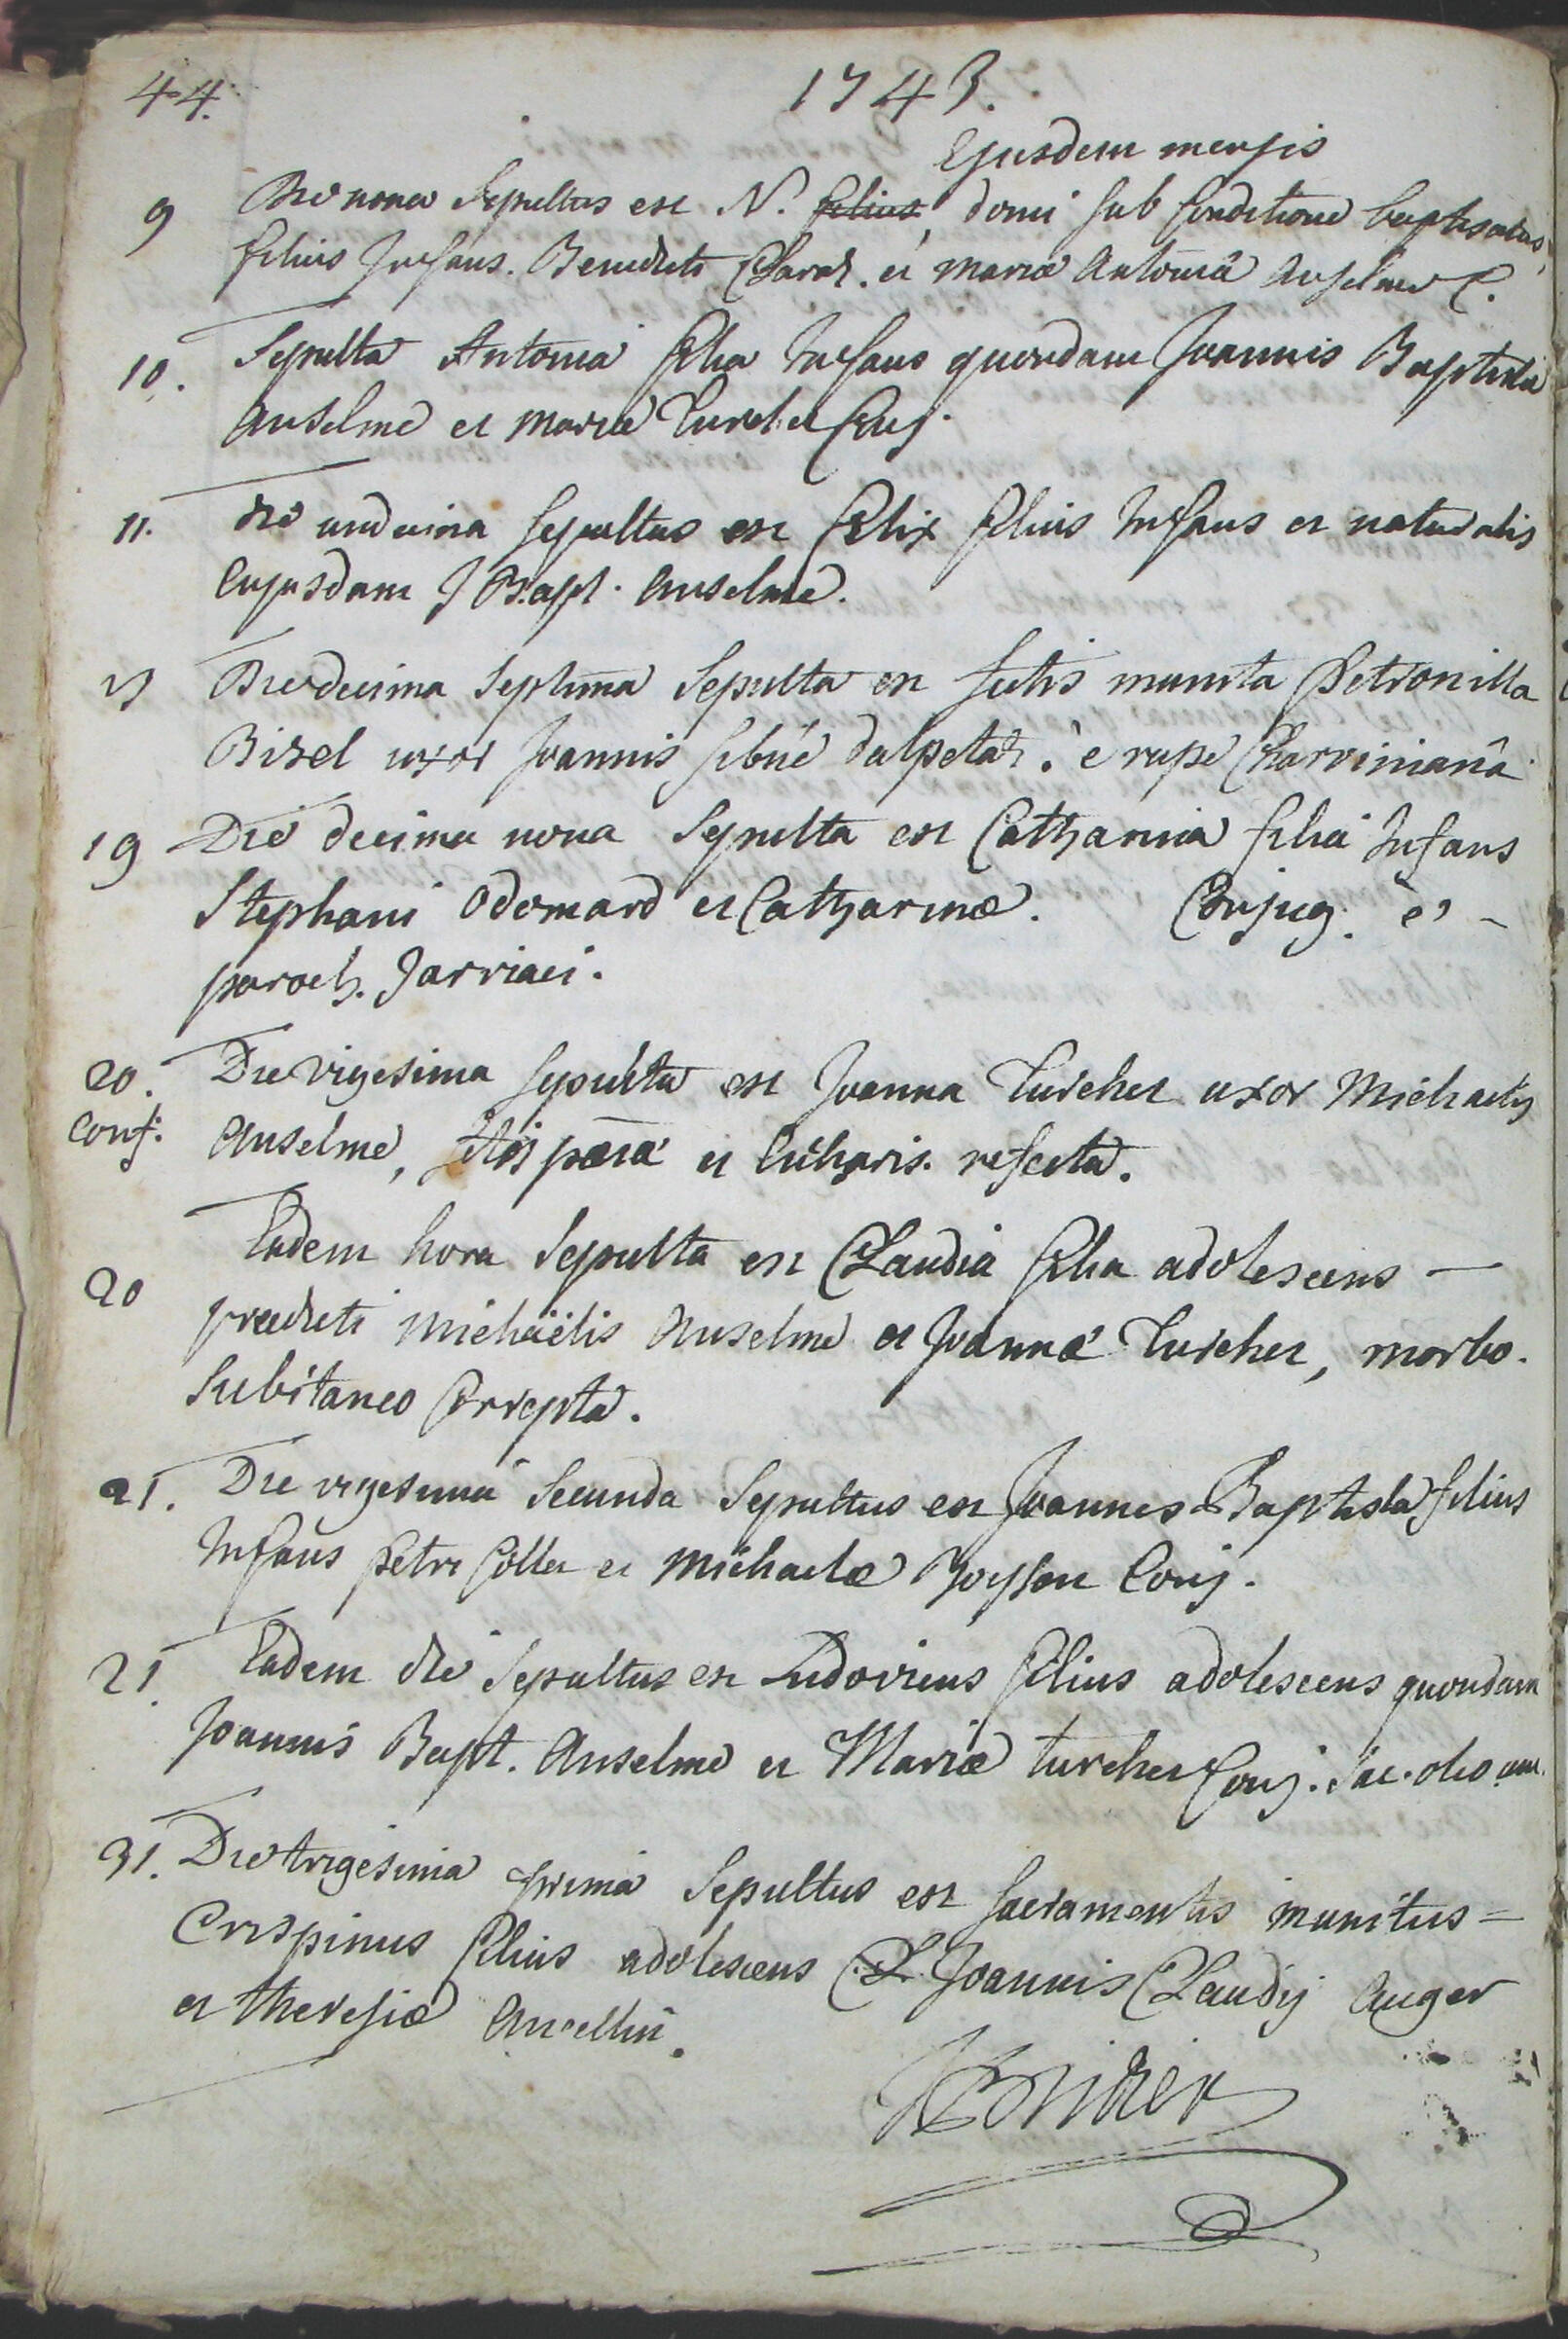 44.
1743.
Ejusdem mensis
9 Die nona Sepultus est N. filius, domi sub conditione baptisatus,
filius Infans. Benedicti Claraz. et mariæ Antoniâ Anselme C.
10. Sepulta Antonia filia Infans quondam Joannis Baptista
Anselme et mariæ Turchet Conj.
11. die undecima sepultus est Felix filius Infans et naturalis
Cujusdam J Bapt. Anselme.
17 Die decima Septima Sepulta est munita Petronilla
Bizel uxor Joannis dalpetaz. è rupe Charvinianâ
19 Die decima nona Sepulta est Catharina filia Infans
Stephani Odomard et Catharinæ. Conjug. è -
paroch. Jarriaci.
20. Die vigesima sepulta est Joanna Turchet uxor Michaelis
Conf. Anselme, et Eucharis. refecta.
Eadem hora Sepulta est Claudia filia adolescens —
20 prædicti Michaëlis Anselme et Joannæ Turchet, morbo.
Subitaneo Correpta.
21. Die vigesima Secunda Sepultus est Joannes Baptista filius
Infans Petri Collet et Michaelæ Conj.
21. Eadem die Sepultus est Ludovicus filius adolescens quondam
Joannis Bapt. Anselme et Mariæ turchet Conj. Sac. oleo
31. Die trigesima prima Sepultus est sacramentis munitus =
Crispinus filius adolescens Joannis Claudij Auger
et theresiæ Ancellin.